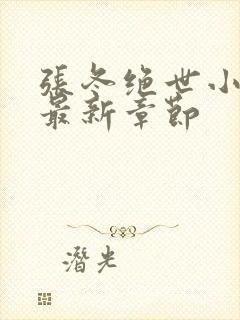 張冬绝世小
最新章節
潛光